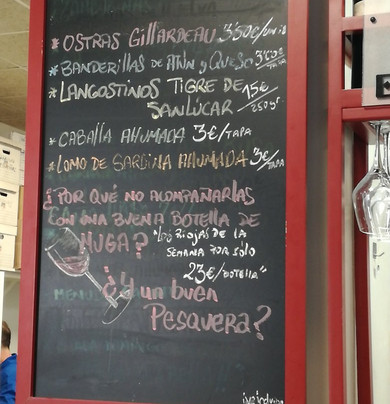 * OSTRAS GILLARDEAU 3'50€/UNID
* BANDERILLAS DE ATÚN y QUESO /TAPA
* LANGOSTINOS TIGRE DE 15€/250gr.
SANLÚCAR
* CABALLA AHUMADA 3€/TAPA
* LOMO DE SARDINA AHUMADA 3€/TAPA
¿POR QUÉ NO ACOMPAÑARLAS
CON UNA BUENA BOTELLA DE
MUGA? "LOS RIOJAS DE LA
SEMANA POR SÓLO
23€/BOTELLA"
¿Y un buen
Pesquera?